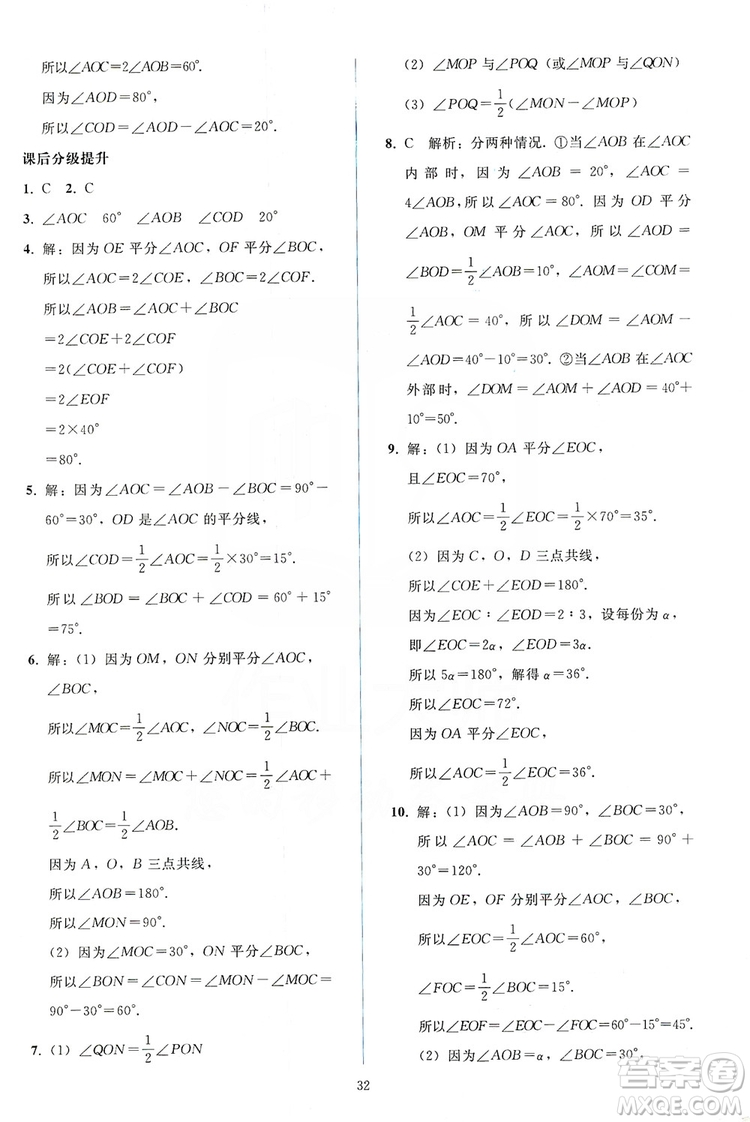 所以∠AOC=2∠AOB=60°.
因为∠AOD=80°,
所以∠COD=∠AOD-∠AOC=20°.
课后分级提升
1. C 2. C
3. ∠AOC 60° ∠AOB ∠COD 20°
4. 解:因为 OE 平分∠AOC,OF 平分∠BOC,
所以∠AOC=2∠COE,∠BOC=2∠COF.
所以∠AOB=∠AOC+∠BOC
=2∠COE+2∠COF
=2(∠COE+∠COF)
=2∠EOF
=2×40°
=80°.
5. 解:因为∠AOC=∠AOB-∠BOC=90°-
60°=30°,OD 是∠AOC 的平分线,
所以∠COD=1/2∠AOC=1/2×30°=15°.
所以∠BOD=∠BOC+∠COD=60°+15°
=75°.
6. 解:(1) 因为 OM,ON 分别平分∠AOC,
∠BOC,
所以∠MOC=1/2∠AOC,∠NOC=1/2∠BOC.
所以∠MON=∠MOC+∠NOC=1/2∠AOC+
1/2∠BOC=1/2∠AOB.
因为 A,O,B 三点共线,
所以∠AOB=180°.
所以∠MON=90°.
(2) 因为∠MOC=30°,ON 平分∠BOC,
所以∠BON=∠CON=∠MON-∠MOC=
90°-30°=60°.
7. (1) ∠QON=1/2∠PON
(2) ∠MOP 与∠POQ (或∠MOP 与∠QON)
(3) ∠POQ=1/2(∠MON-∠MOP)
8. C 解析:分两种情况.①当∠AOB 在∠AOC
内部时,因为∠AOB=20°,∠AOC=
4∠AOB,所以∠AOC=80°.因为 OD 平分
∠AOB,OM 平分∠AOC,所以∠AOD=
∠BOD=1/2∠AOB=10°,∠AOM=∠COM=
1/2∠AOC=40°,所以∠DOM=∠AOM-
∠AOD=40°-10°=30°.②当∠AOB在∠AOC
外部时,∠DOM=∠AOM+∠AOD=40°+
10°=50°.
9. 解:(1) 因为 OA 平分∠EOC,
且∠EOC=70°,
所以∠AOC=1/2∠EOC=1/2×70°=35°.
(2) 因为 C,O,D 三点共线,
所以∠COE+∠EOD=180°.
因为∠EOC∶∠EOD=2∶3,设每份为α,
即∠EOC=2α,∠EOD=3α.
所以 5α=180°,解得 α=36°.
所以∠EOC=72°.
因为 OA 平分∠EOC,
所以∠AOC=1/2∠EOC=36°.
10. 解:(1) 因为∠AOB=90°,∠BOC=30°,
所以∠AOC=∠AOB+∠BOC=90°+
30°=120°.
因为 OE,OF 分别平分∠AOC,∠BOC,
所以∠EOC=1/2∠AOC=60°,
∠FOC=1/2∠BOC=15°.
所以∠EOF=∠EOC-∠FOC=60°-15°=45°.
(2) 因为∠AOB=α,∠BOC=30°,
32
答案圈
MXQE.COM